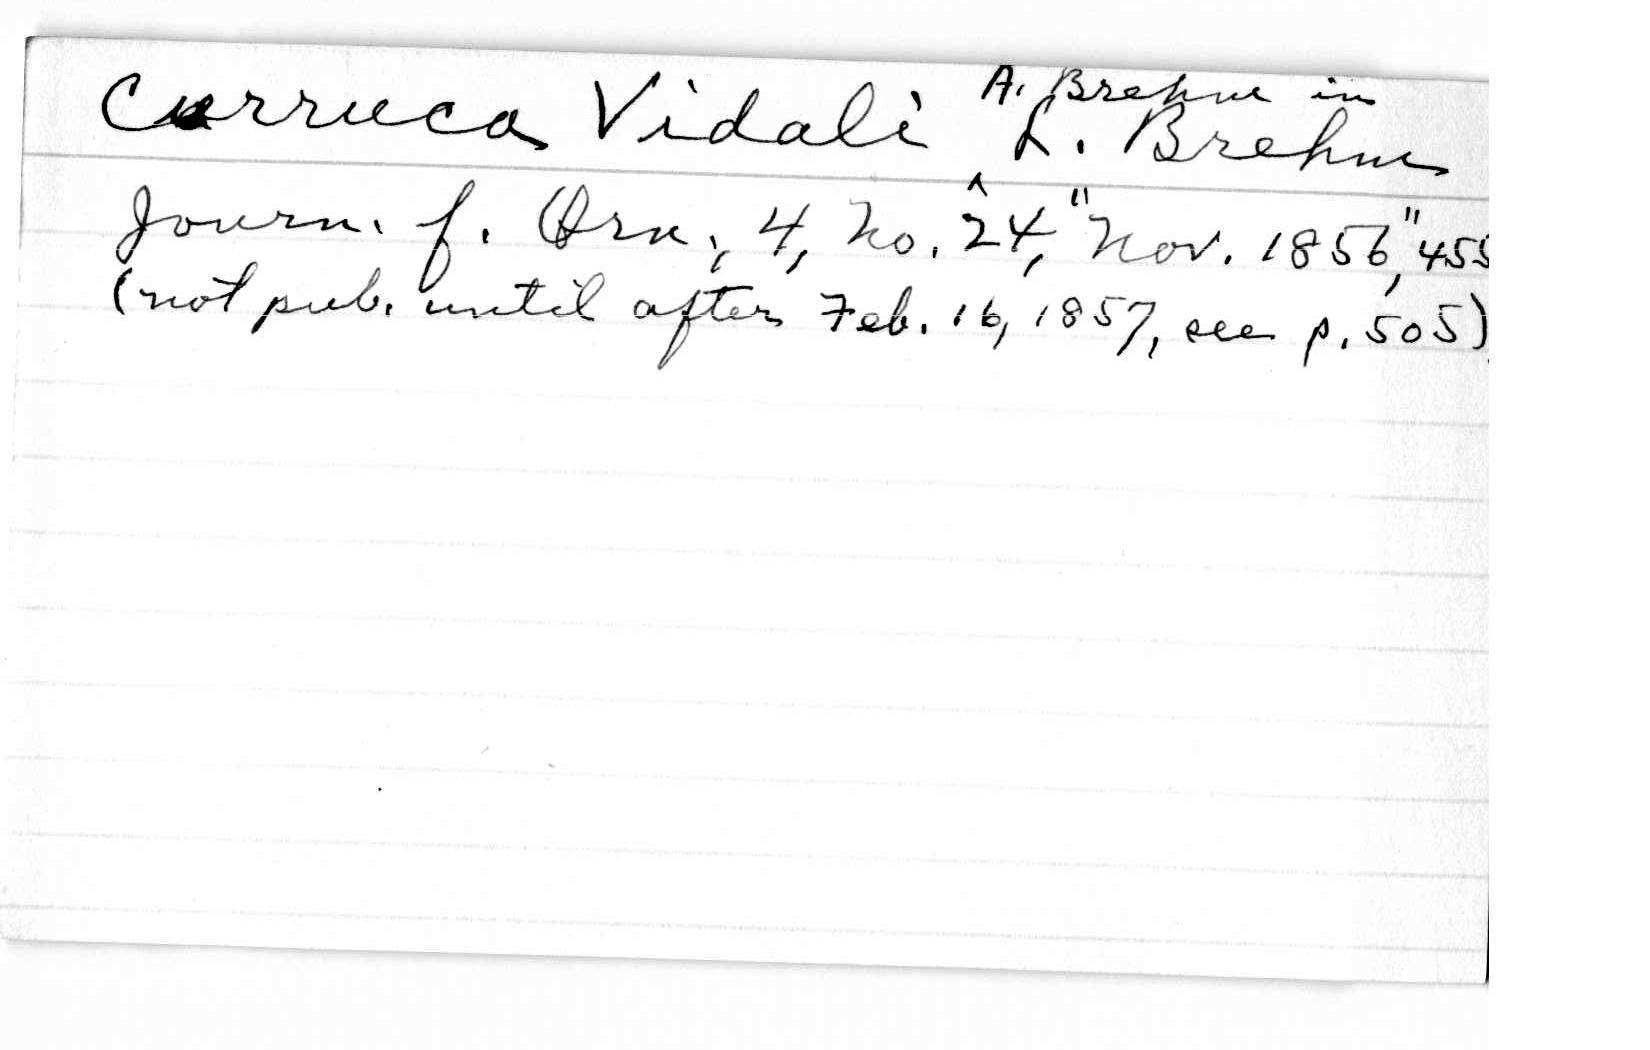 Curruca Vidali A. Brehm in L. Brehm
Journ. f. Orn., 4, No. 24, "Nov. 1856," 455
(not pub. until after Feb. 16, 1857, see p. 505)